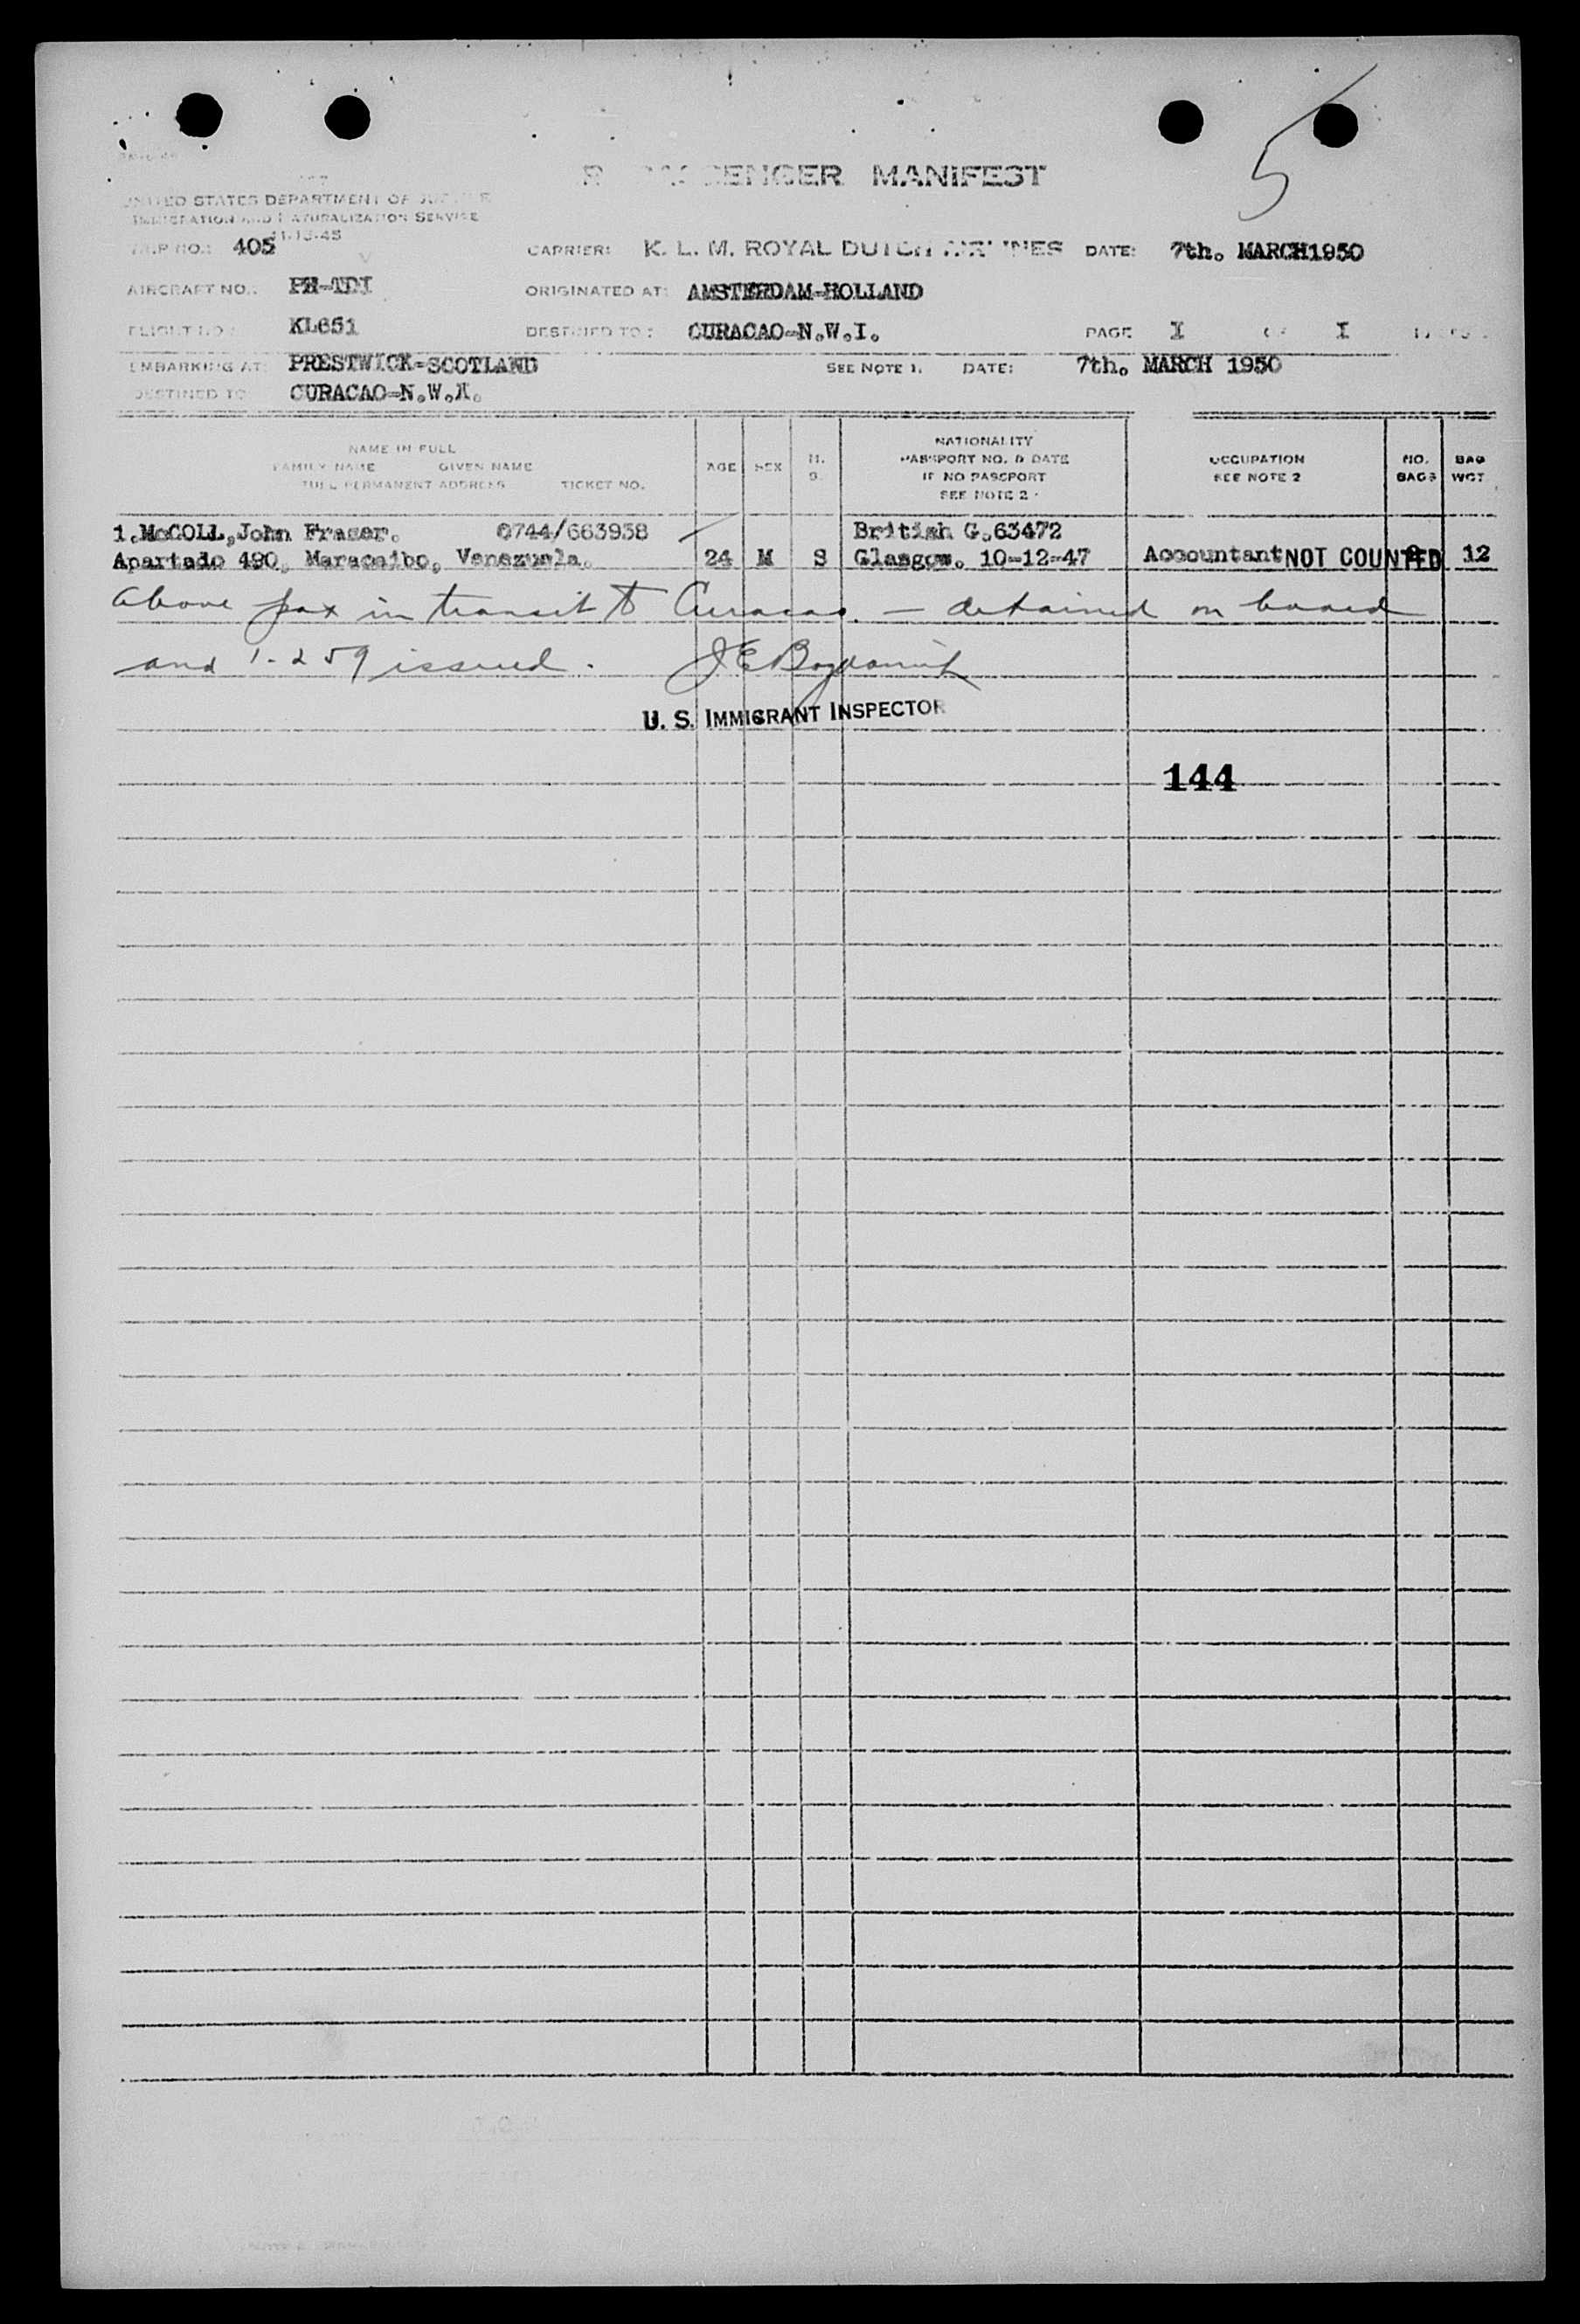 5
PASSENGER MANIFEST
UNITED STATES DEPARTMENT OF JUSTICE
IMMIGRATION AND NATURALIZATION SERVICE
11-15-45
TRIP NO.: 405 CARRIER: K. L. M. ROYAL DUTCH AIRLINES DATE: 7th. MARCH1950
AIRCRAFT NO.: PH-TDI ORIGINATED AT: AMSTERDAM-HOLLAND
FLIGHT NO.: KL651 DESTINED TO: CURACAO-N.W.I. PAGE I OF I
EMBARKING AT: PRESTWICK-SCOTLAND SEE NOTE 1. DATE: 7th. MARCH 1950
DESTINED TO CURACAO-N.W.I.
NAME IN FULL
FAMILY NAME GIVEN NAME
FULL PERMANENT ADDRESS TICKET NO.
AGE SEX M. S.
NATIONALITY
PASSPORT NO. & DATE
IF NO PASSPORT
SEE NOTE 2
OCCUPATION
SEE NOTE 2
NO.
BAGS
BAG
WGT
1.McCOLL,John Fraser. 0744/663938 British G.63472
Apartado 490, Maracaibo, Venezuela. 24 M S Glasgow. 10-12-47 Accountant NOT COUNTED 12
Above pax in transit to Curacao. — detained on board
and I-259 issued.
U. S. IMMIGRANT INSPECTOR
144